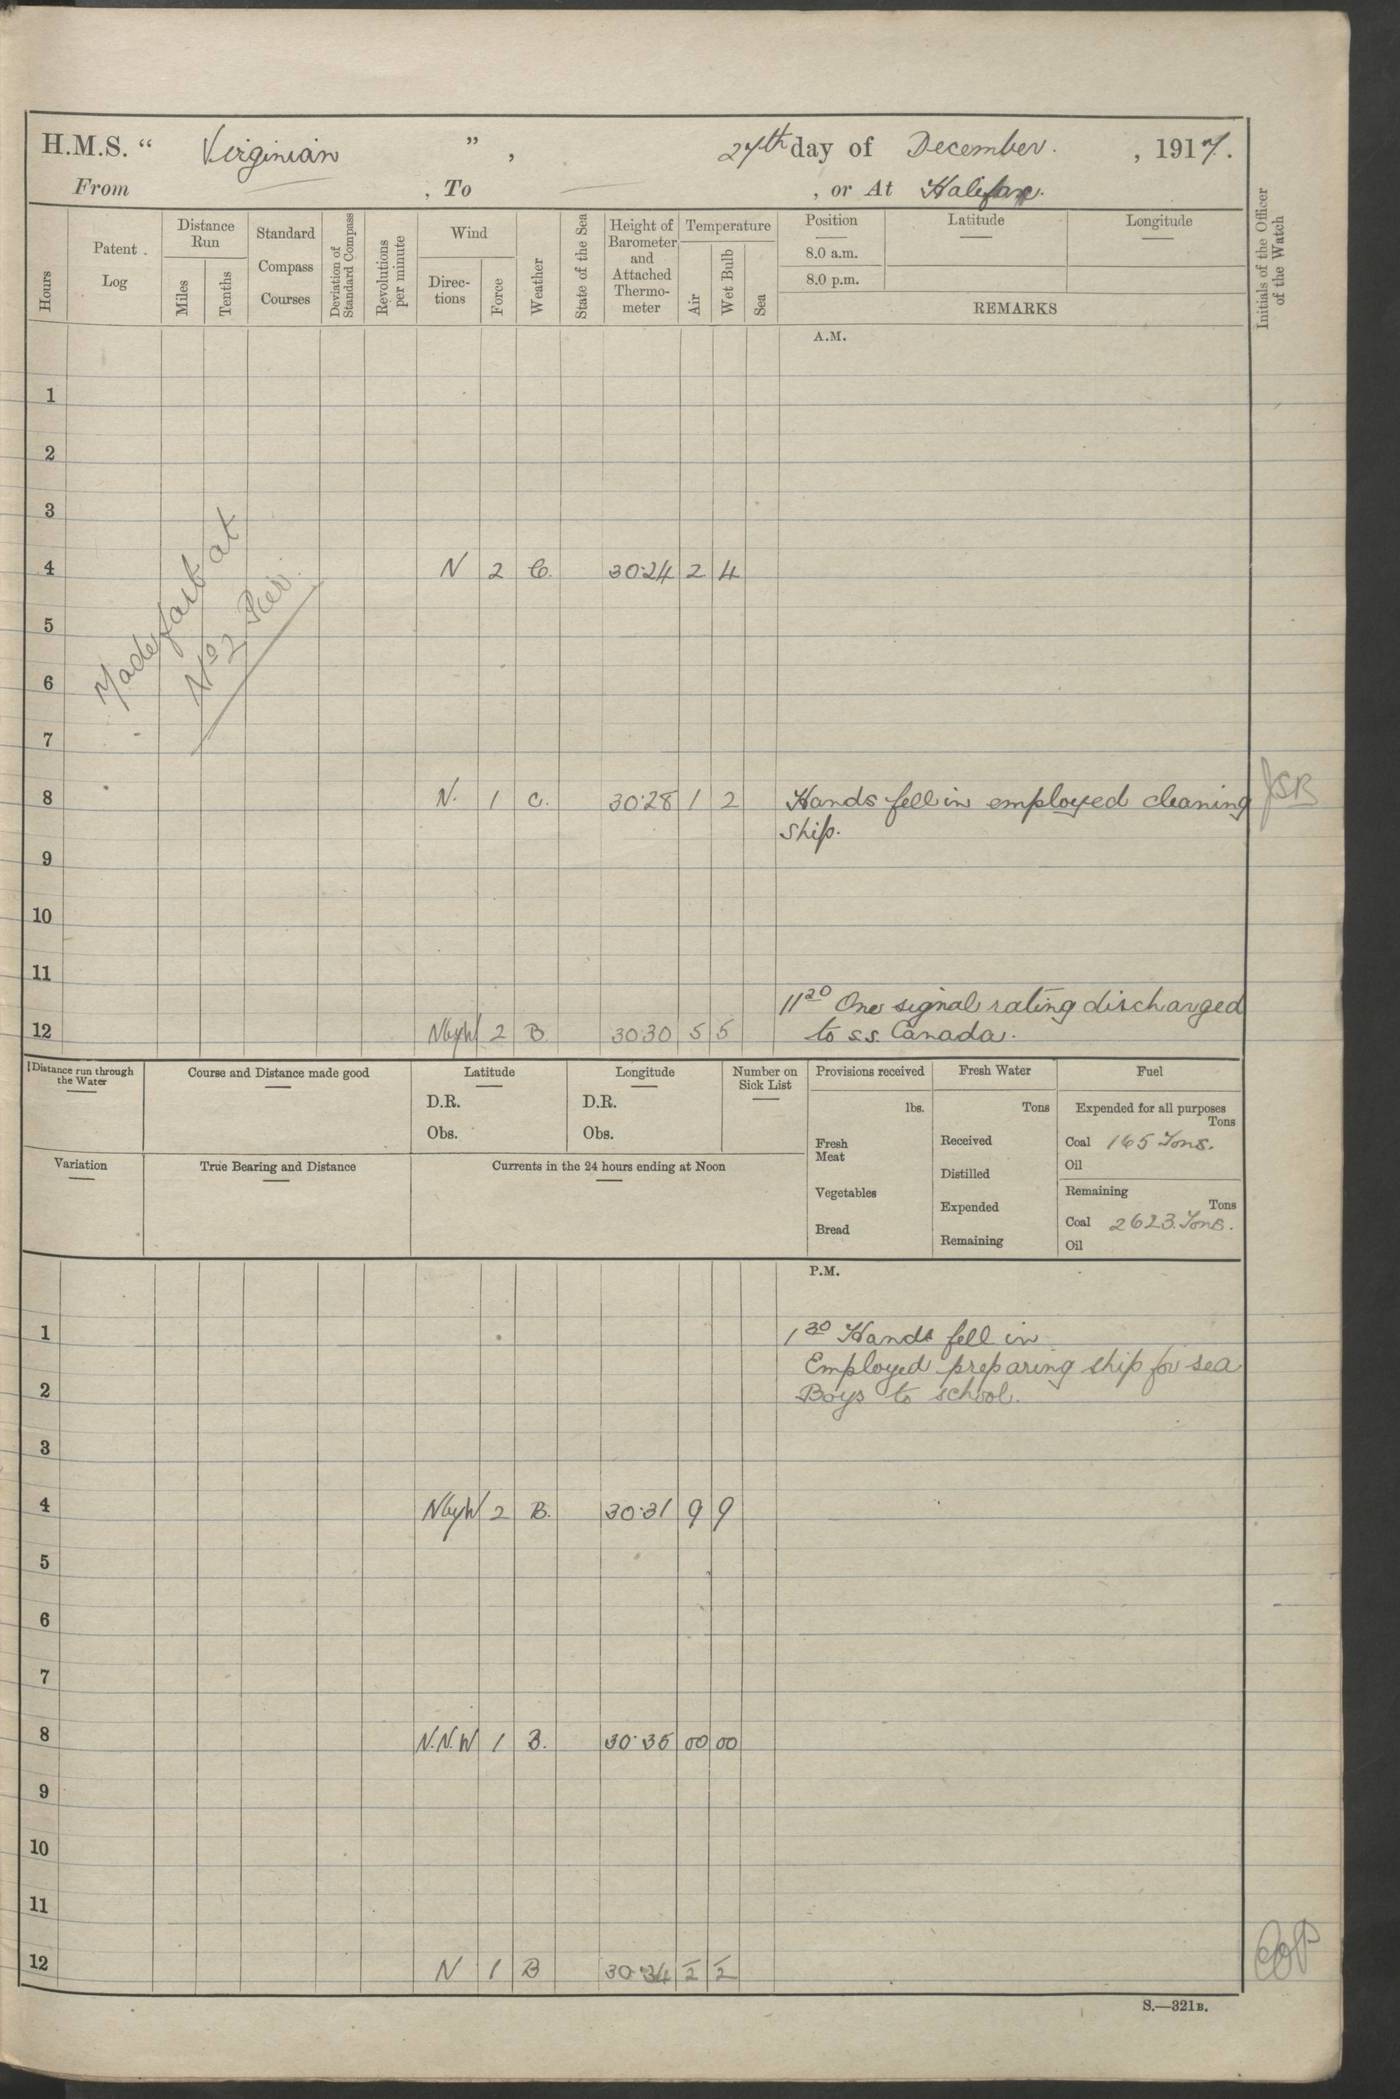 H.M.S. “ Virginian ” , 27th day of December. , 1917.
From , To , or At Halifax.
Hours
Patent Log
Distance Run
Miles
Tenths
Standard Compass Courses
Deviation of Standard Compass
Revolutions per minute
Wind
Direc-tions
Force
Weather
State of the Sea
Height of Barometer and Attached Thermo-meter
Temperature
Air
Wet Bulb
Sea
Position
8.0 a.m.
8.0 p.m.
Latitude
Longitude
REMARKS
Initials of the Officer of the Watch
A.M.
1
2
3
Made fast at
No 2 Pier.
4 N 2 C. 30.24 2 4
5
6
7
8 N. 1 C. 30.28 1 2 Hands fell in employed cleaning JSB
ship.
9
10
11
11 20 One signal rating discharged
12 NbyW 2 B 30.30 5 5 to s.s. Canada.
Distance run through the Water
Course and Distance made good
Latitude
D.R.
Obs.
Longitude
D.R.
Obs.
Number on Sick List
Provisions received
lbs.
Fresh Meat
Vegetables
Bread
Fresh Water
Tons
Received
Distilled
Expended
Remaining
Fuel
Expended for all purposes
Tons
Coal 165 Tons.
Oil
Remaining
Tons
Coal 2623 Tons.
Oil
Variation
True Bearing and Distance
Currents in the 24 hours ending at Noon
P.M.
1 1 30 Hands fell in
Employed preparing ship for sea
2 Boys to school.
3
4 NbyW 2 B. 30.31 9 9
5
6
7
8 N.N.W 1 B. 30.35 00 00
9
10
11
12 N 1 B 30.34 -2 -2
S.—321B.